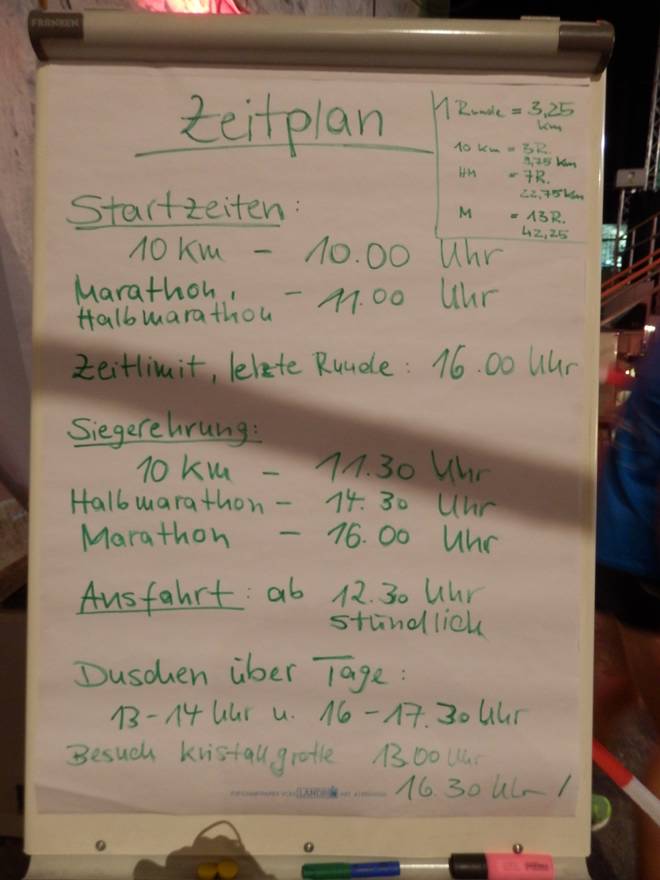 FRANKEN
Zeitplan
1 Runde = 3,25
km
10 km = 3R.
9,75 km
HM = 7R.
22,75 km
M = 13R.
42,25
Startzeiten:
10 km - 10.00 Uhr
Marathon, - 11.00 Uhr
Halbmarathon
Zeitlimit, letzte Runde: 16.00 Uhr
Siegerehrung:
10 km - 11.30 Uhr
Halbmarathon - 14.30 Uhr
Marathon - 16.00 Uhr
Ausfahrt: ab 12.30 Uhr
stündlich
Duschen über Tage:
13-14 Uhr u. 16-17.30 Uhr
Besuch Kristallgrotte 13.00 Uhr
16.30 Uhr !
LANDRÉ